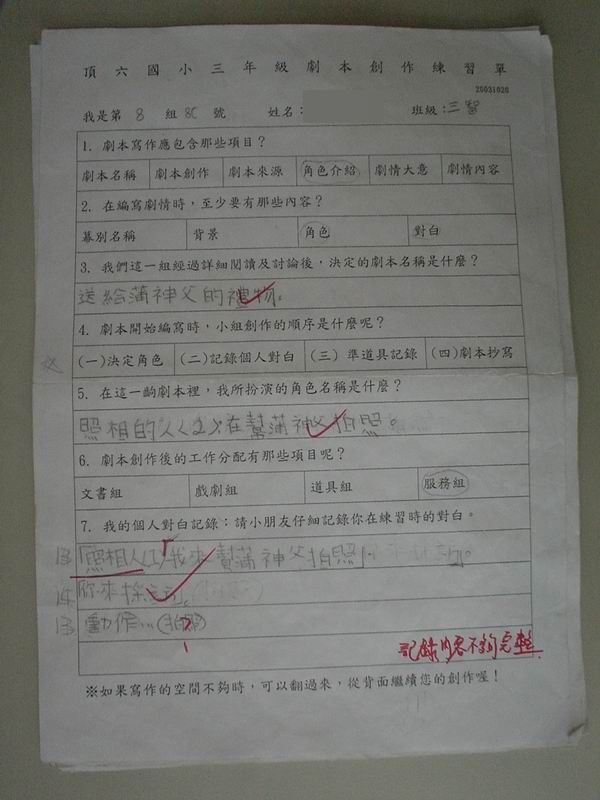 頂六國小三年級劇本創作練習單
20031020
我是第 8 組 8C 號 姓名： 班級：三智
1. 劇本寫作應包含那些項目？
劇本名稱 劇本創作 劇本來源 角色介紹 劇情大意 劇情內容
2. 在編寫劇情時，至少要有那些內容？
幕別名稱 背景 角色 對白
3. 我們這一組經過詳細閱讀及討論後，決定的劇本名稱是什麼？
送給蒲神父的禮物。
4. 劇本開始編寫時，小組創作的順序是什麼呢？
(一)決定角色 (二)記錄個人對白 (三) 準道具記錄 (四)劇本抄寫
5. 在這一齣劇本裡，我所扮演的角色名稱是什麼？
照相的人(2)在幫蒲神父拍照。
6. 劇本創作後的工作分配有那些項目呢？
文書組 戲劇組 道具組 服務組
7. 我的個人對白記錄：請小朋友仔細記錄你在練習時的對白。
13 照相人(2)我來幫蒲神父拍照
14 你來採
13 動作...(拍照)
記錄內容不夠完整
※如果寫作的空間不夠時，可以翻過來，從背面繼續您的創作喔！